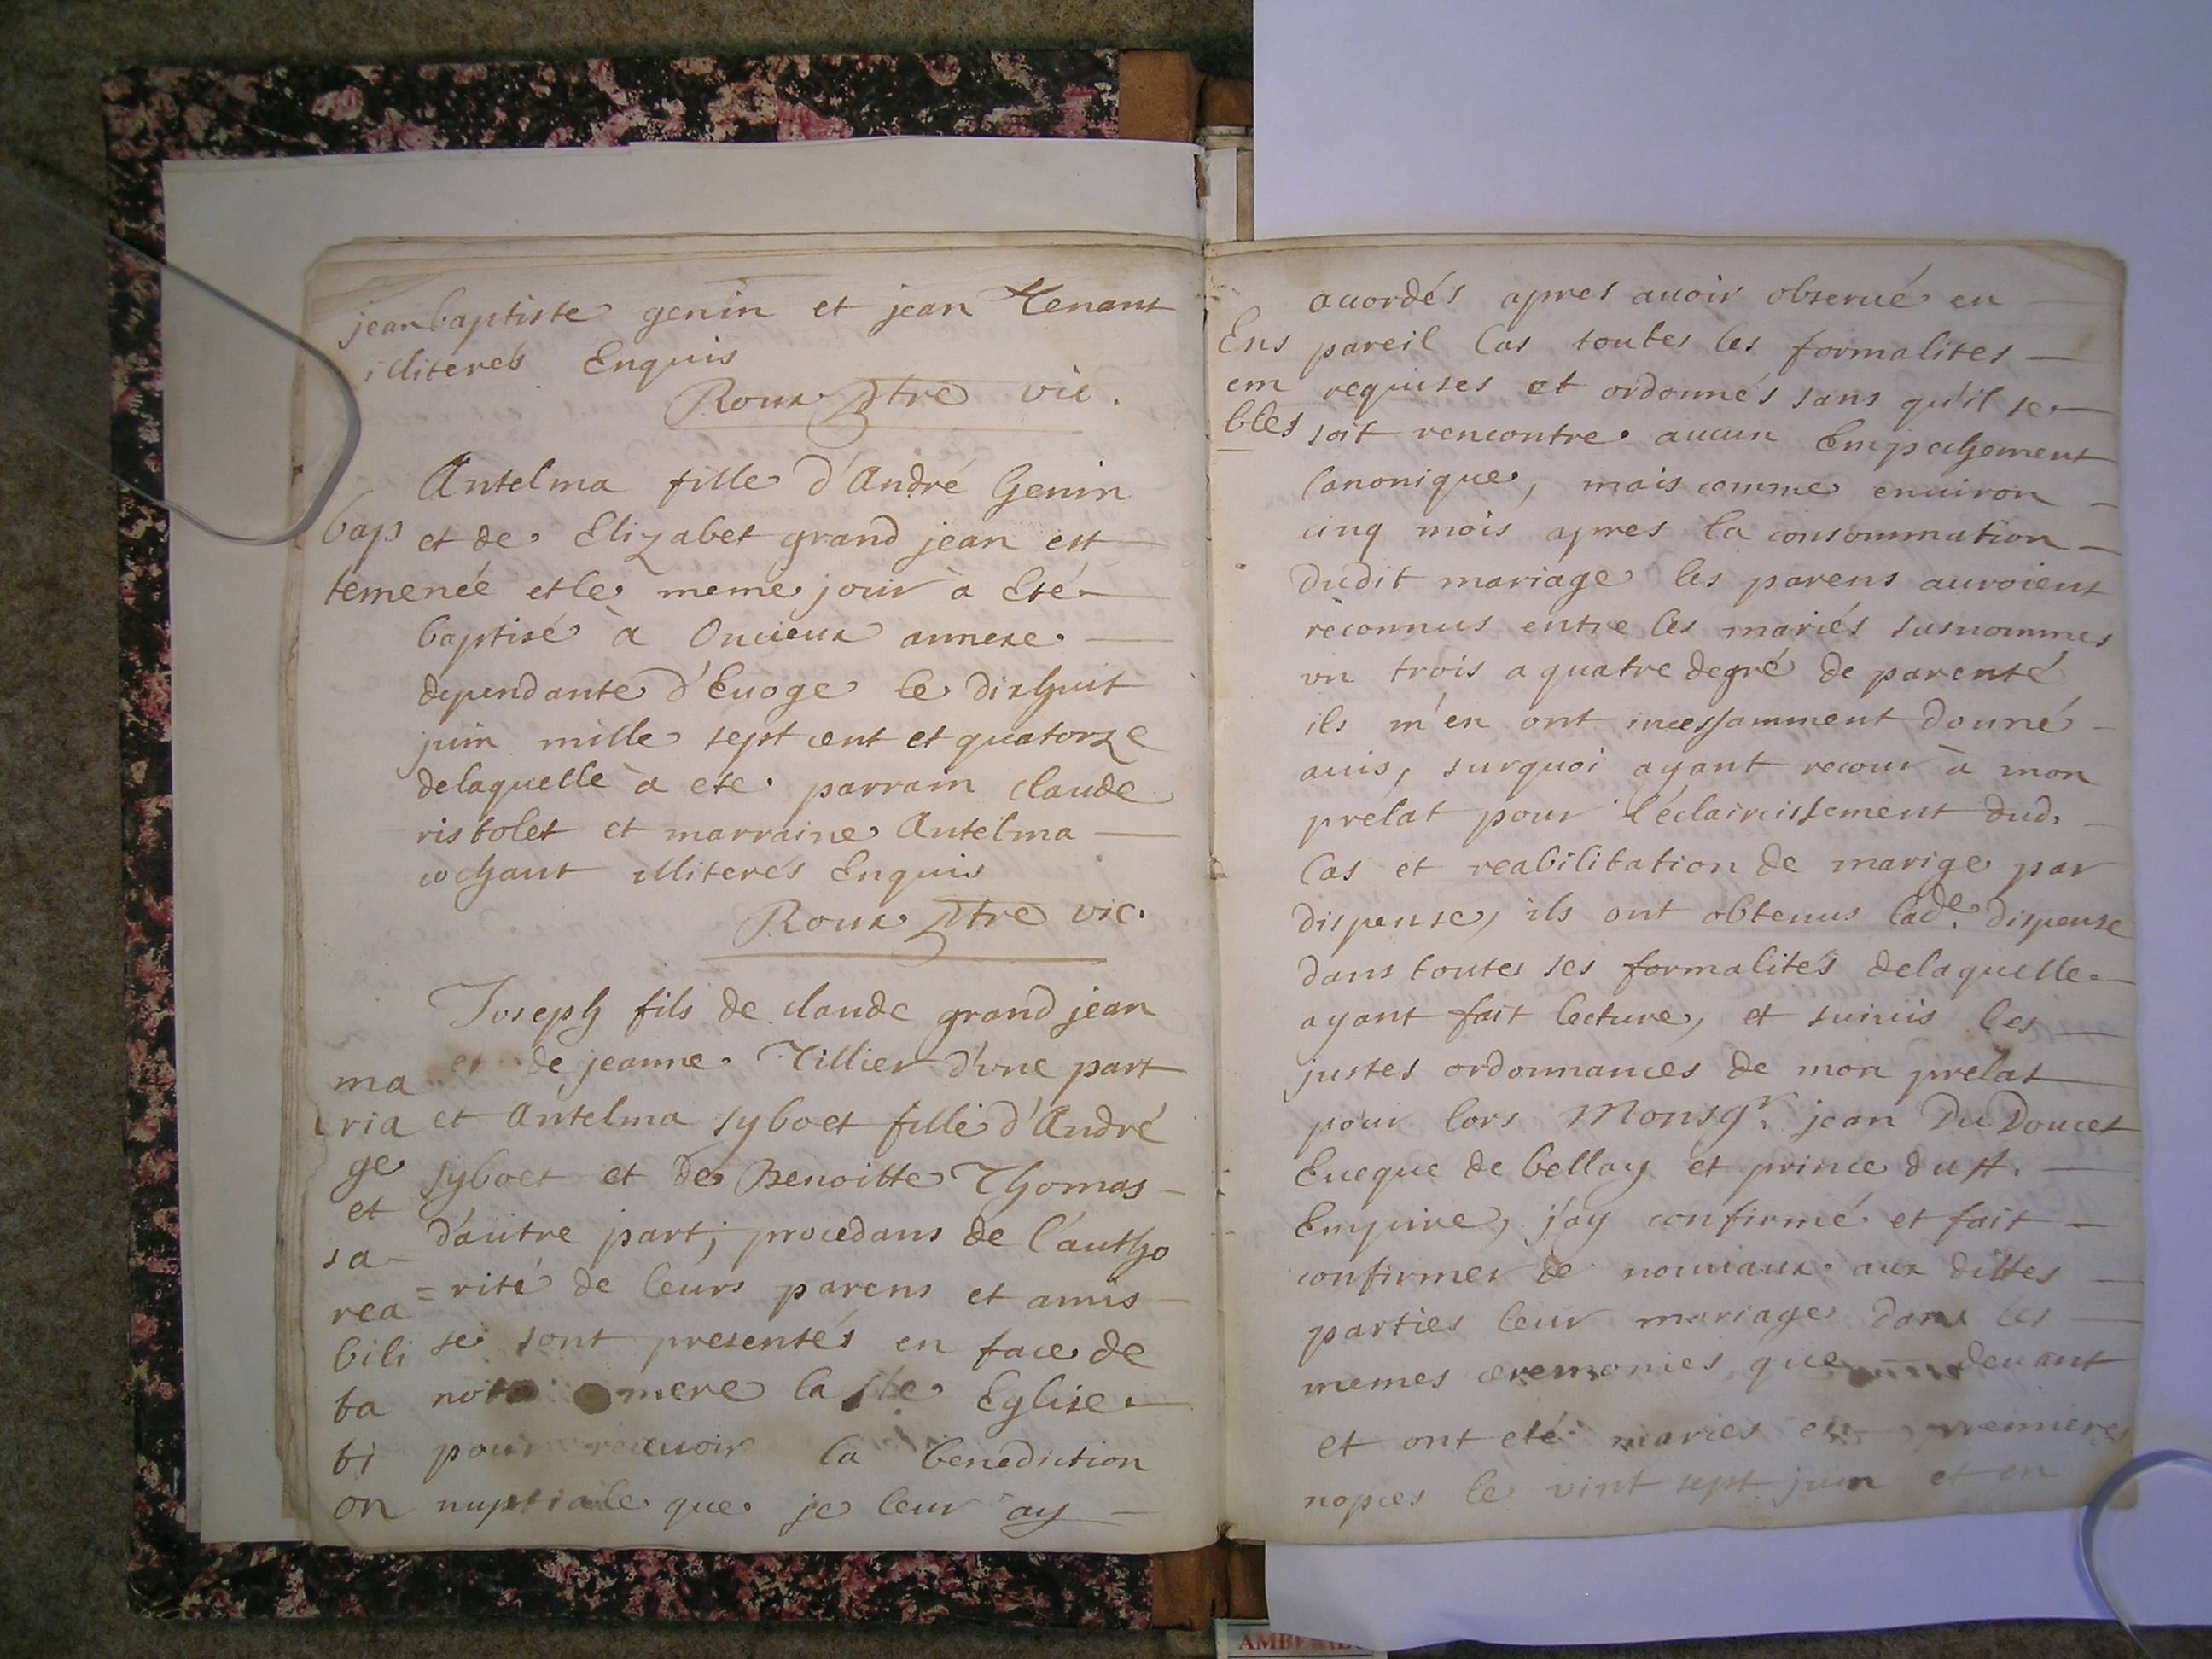 jean baptiste genin et jean tenant
illiterés Enquis
Roux ptre vic.
bap
teme
Antelma fille d'André Genin
et de Elizabet grand jean est
née et le meme jour à Eté
baptisé à Oncieux annexe
dependante d'Euoge le dixhuit
juin mille sept cent et quatorze
delaquelle à ete parrain claude
ristolet et marraine Antelma
cochant illiterés Enquis
Roux ptre vic.
ma
ria
ge
et
sa
rea
bili
ta
ti
on
Joseph fils de claude grand jean
et de jeanne Tillier d'vne part
et Antelma syboet fille d'André
syboet et de Benoitte Thomas
d'autre part; procedans de l'autho
=rité de leurs parens et amis
se sont presentés en face de
notre mere la ste Eglise
pour receuoir la benediction
nuptiale que je leur ay
Ens
em
bles
acordés apres auoir obserué en
pareil Cas toutes les formalites
requises et ordonnés sans qu'il se
soit rencontre aucun Empechement
Canonique, mais comme enuiron
cinq mois apres la consommation
dudit mariage les parens auroient
reconnus entre les mariés susnommes
vn trois a quatre degré de parenté
ils m'en ont incessamment donné
auis, surquoi ayant recour à mon
prelat pour l'éclaircissement dud.
Cas et reabilitation de marige par
dispense, ils ont obtenus lade. dispense
dans toutes ses formalités delaquelle
ayant fait lecture, et suiuis les
justes ordonnances de mon prelat
pour lors Monsgr. jean Du Doucet
Eueque de bellay et prince du st.
Empire, j'ay confirmé et fait
confirmer de nouuaux aux dittes
parties leur mariage dans les
memes ceremonies que deuant
et ont eté mariés en premieres
nopces le vint sept juin et en
AMBE